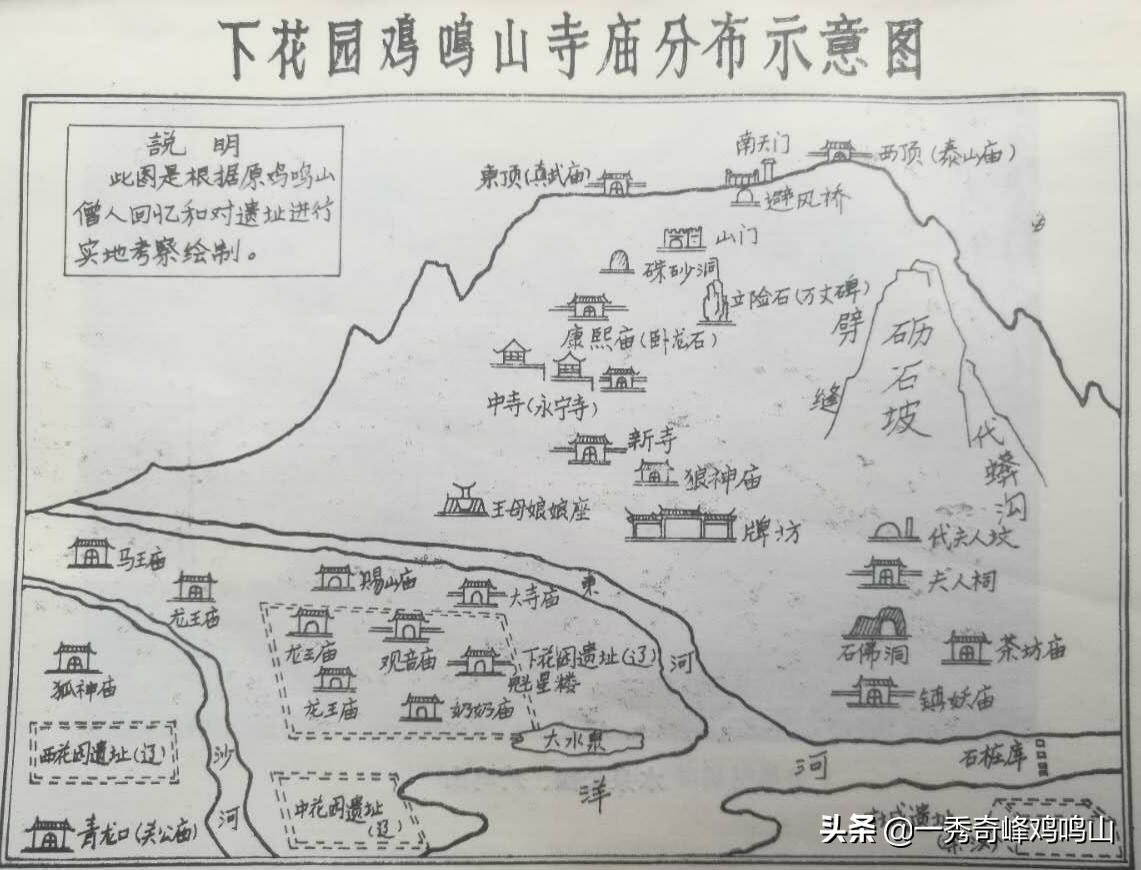 下花园鸡鸣山寺庙分布示意图
説 明
此图是根据原鸡鸣山
僧人回忆和对遗址进行
实地考察绘制。
南天门
西顶(泰山庙)
東顶(真武庙)
避风桥
山门
硃砂洞
立险石(万丈碑)
康熙庙(卧龙石)
劈
缝
砺
石
坡
中寺(永宁寺)
代
蟒
沟
新寺
狼神庙
王母娘娘座
牌坊
代夫人坟
马王庙
赐山庙
大寺庙
東
河
夫人祠
龙王庙
龙王庙
观音庙
下花园遗址(辽)
魁星楼
石佛洞
茶坊庙
狐神庙
龙王庙
奶奶庙
镇妖庙
西花园遗址(辽)
沙
河
大水泉
洋
河
石桩库
中花园遗址
(辽)
青龙口(关公庙)
遗址
头条 @一秀奇峰鸡鸣山